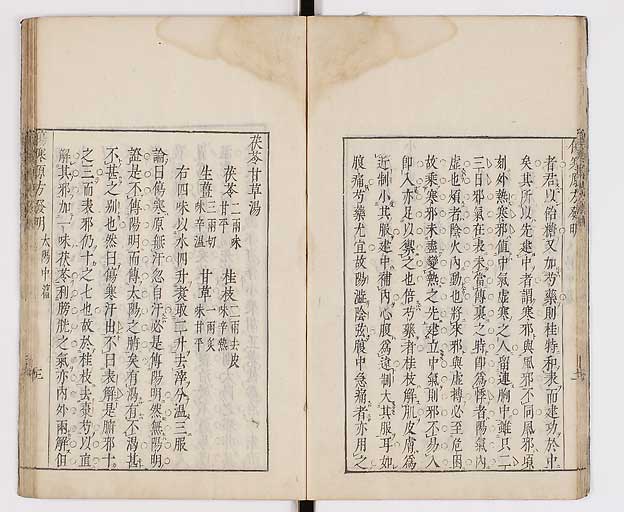 傷寒原方發明
者君以飴糖又加芍藥則桂特和表而建功於中
矣其所以先建中者謂寒邪與風邪不同風邪頃
刻外熱寒邪值中氣虛寒之人留連胸中雖只二
三日邪氣在表未當傳裏之時即為悸者陽氣內
虛也煩者陰火內動也將來邪與虛搏必至危困
故乘寒邪未盡變熱之先建立中氣則邪不易入
即入亦足以禦之也倍芍藥者桂枝解肌皮膚為
近制小其服建中補內心腹為遠制大其服耳如
腹痛芍藥尤宜故陽濇陰弦腹中急痛者亦用之
茯苓甘草湯
茯苓二兩味甘平 桂枝二兩去皮味辛熱
生薑三兩切味辛溫 甘草一兩炙味甘平
右四味以水四升煑取二升去滓分溫三服
論曰傷寒原無汗忽自汗必是傳陽明然無陽明
證是不傳陽明而傳太陽之腑矣有渴有不渴甚
不甚之別也然曰傷寒汗出不曰表解是腑邪十
之三而表邪仍十之七也故於桂枝去棗芍以直
解其邪加一味茯苓利膀胱之氣亦內外兩解但
傷寒原方發明 太陽中篇